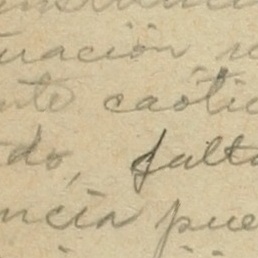 uación
nte caótic
do, falta
ncia pue